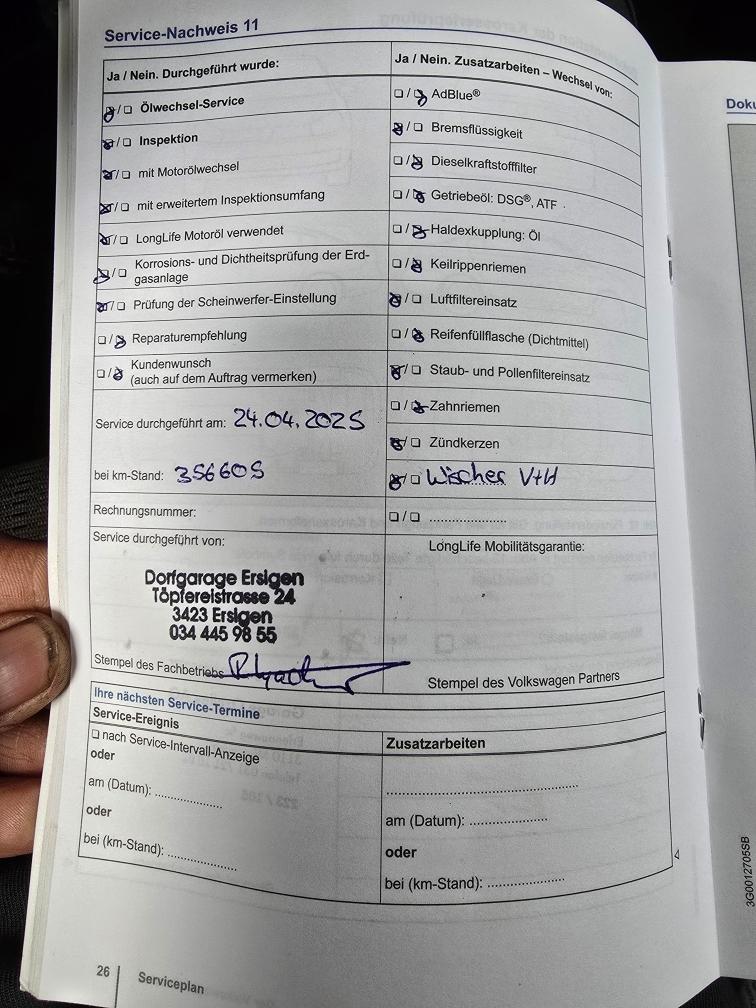 Service-Nachweis 11
Ja / Nein. Durchgeführt wurde:
☒/☐ Ölwechsel-Service
☒/☐ Inspektion
☒/☐ mit Motorölwechsel
☒/☐ mit erweitertem Inspektionsumfang
☒/☐ LongLife Motoröl verwendet
☒/☐ Korrosions- und Dichtheitsprüfung der Erd-
gasanlage
☒/☐ Prüfung der Scheinwerfer-Einstellung
☐/☒ Reparaturempfehlung
☐/☒ Kundenwunsch
(auch auf dem Auftrag vermerken)
Service durchgeführt am: 24.04.2025
bei km-Stand: 356605
Rechnungsnummer:
Service durchgeführt von:
Dorfgarage Ersigen
Töpfereistrasse 24
3423 Ersigen
034 445 98 55
Stempel des Fachbetriebs
Ja / Nein. Zusatzarbeiten – Wechsel von:
☐/☒ AdBlue®
☒/☐ Bremsflüssigkeit
☐/☒ Dieselkraftstofffilter
☐/☒ Getriebeöl: DSG®, ATF
☐/☒ Haldexkupplung: Öl
☐/☒ Keilrippenriemen
☒/☐ Luftfiltereinsatz
☐/☒ Reifenfüllflasche (Dichtmittel)
☒/☐ Staub- und Pollenfiltereinsatz
☐/☒ Zahnriemen
☒/☐ Zündkerzen
☒/☐ Wischer V+H
☐/☐ ......................
LongLife Mobilitätsgarantie:
Stempel des Volkswagen Partners
Ihre nächsten Service-Termine
Service-Ereignis
☐ nach Service-Intervall-Anzeige
oder
am (Datum): ..................
oder
bei (km-Stand): ..................
Zusatzarbeiten
..................................................
am (Datum): ....................
oder
bei (km-Stand): ....................
26
Serviceplan
Doku
3G0012705SB